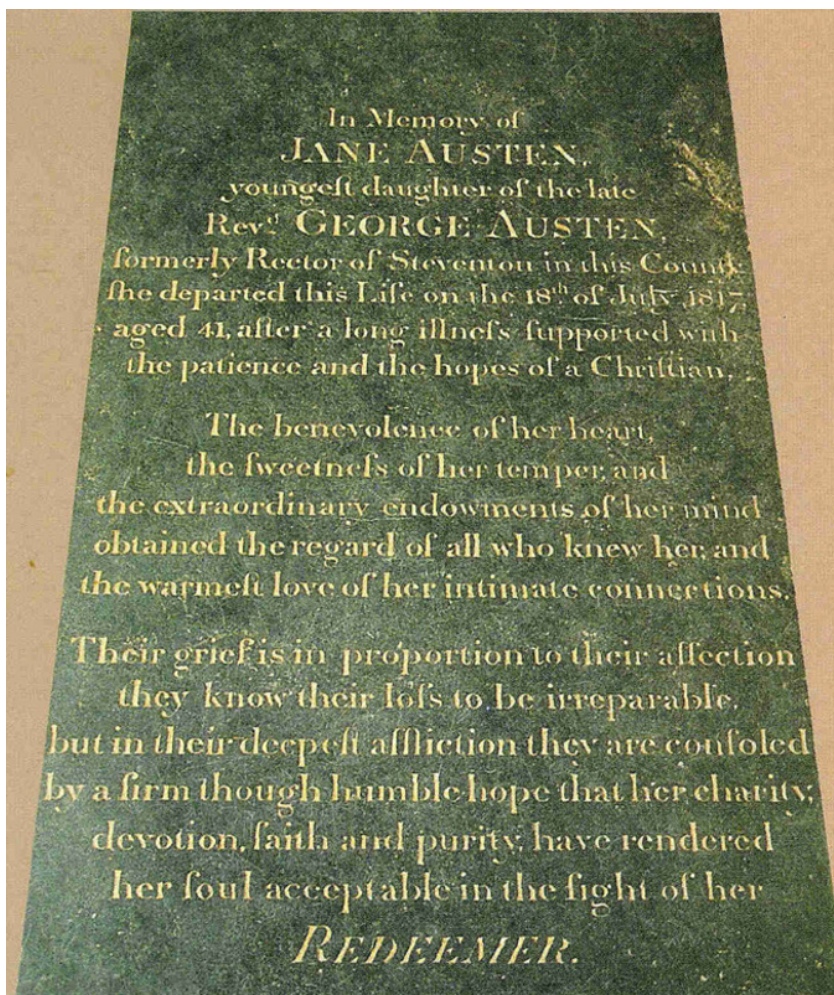 In Memory of
JANE AUSTEN,
youngeſt daughter of the late
Revd GEORGE AUSTEN,
formerly Rector of Steventon in this County
ſhe departed this Life on the 18th of July 1817,
aged 41, after a long illneſs ſupported with
the patience and the hopes of a Chriſtian.
The benevolence of her heart,
the ſweetneſs of her temper, and
the extraordinary endowments of her mind
obtained the regard of all who knew her, and
the warmeſt love of her intimate connections.
Their grief is in proportion to their affection
they know their loſs to be irreparable,
but in their deepeſt affliction they are conſoled
by a firm though humble hope that her charity,
devotion, faith and purity, have rendered
her ſoul acceptable in the ſight of her
REDEEMER.